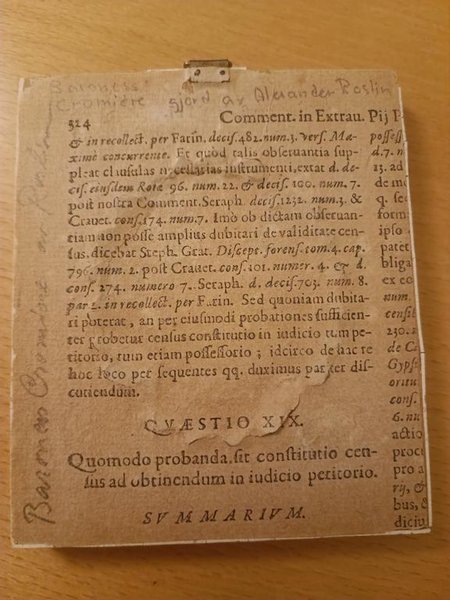 Baroness
Cromière gjord av Alexander Roslin
324 Comment. in Extrau. Pij
& in recollect. per Farin. decis. 482. num. 3. vers. Ma-
ximè concurrente. Et quod talis obseruantia sup-
pleat clausulas necessarias instrumenti, extat d. de-
cis. eiusdem Rotæ 96. num. 22. & decis. 100. num. 7.
post nostra Comment. Seraph. decis. 1232. num. 3. &
Crauet. cons. 174. num. 7. Imò ob dictam obseruan-
tiam non posse amplius dubitari de validitate cen-
sus, dicebat Steph. Grat. Discept. forens. tom. 4. cap.
796. num. 2. post Crauet. cons. 101. numer. 4. & d.
cons. 274. numero 7. Seraph. d. decis. 703. num. 8.
par. 2. in recollect. per Farin. Sed quoniam dubita-
ri poterat, an per eiusmodi probationes sufficien-
ter probetur census constitutio in iudicio tum pe-
titorio, tum etiam possessorio; idcirco de hac re
hoc loco per sequentes qq. duximus pariter dis-
cutiendum.
QVÆSTIO XIX.
Quomodo probanda sit constitutio cen-
sus ad obtinendum in iudicio petitorio.
SVMMARIVM.
possess
d. 7. n
13. ad
de mo
q. se
form
ipso
patet
obliga
ex eo
num.
censil
230. n
de C
Gyps
oritu
cons.
6. nu
actio
proc
pro a
rij, &
bus, &
diciu
Baroness Cromière